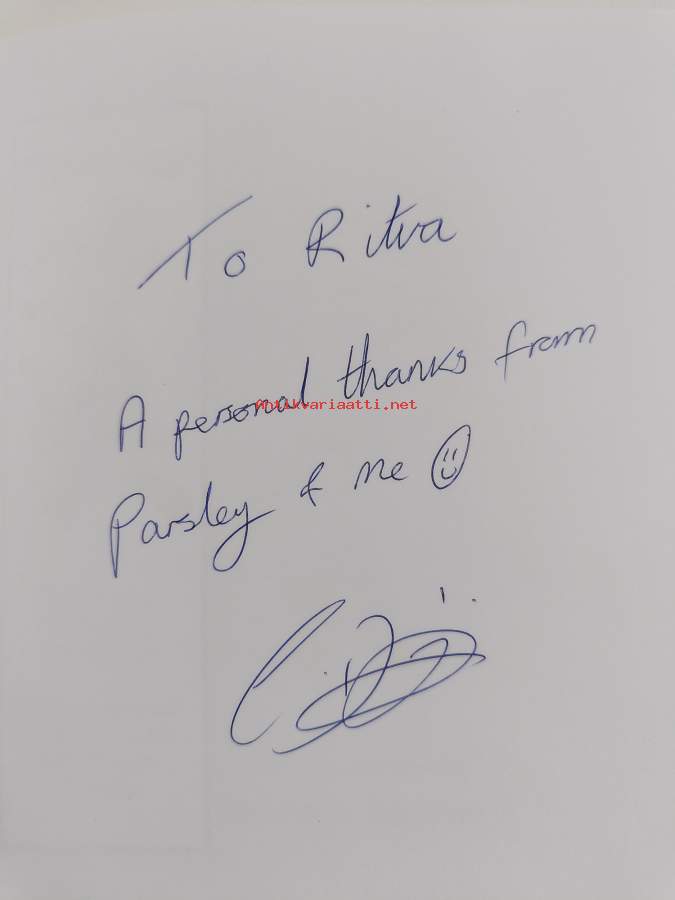 To Ritva
A personal thanks from
Antikvariaatti.net
Parsley & me ☺